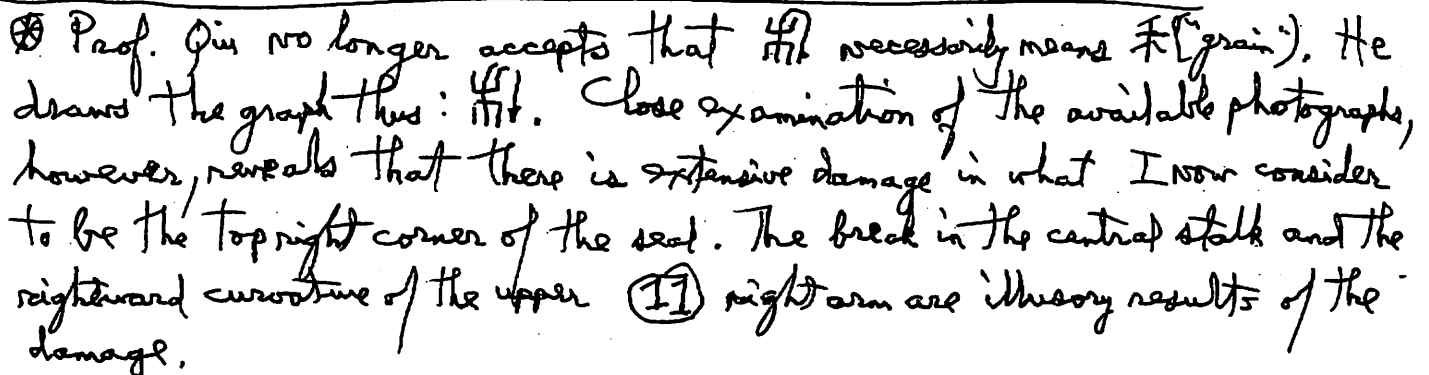 ⊛ Prof. Qiu no longer accepts that necessarily means 禾 ("grain"). He
draws the graph thus: . Close examination of the available photographs,
however, reveals that there is extensive damage in what I now consider
to be the top right corner of the seal. The break in the central stalk and the
rightward curvature of the upper ⑪ right arm are illusory results of the
damage.